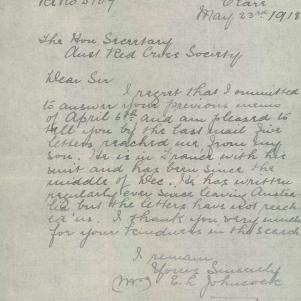 Re No 3109
Clare
May 23rd 1918
The Hon Secretary
Aust Red Cross Society
Dear Sir
I regret that I ommitted
to answer your previous memo
of April 6th and am pleased to
tell you by the last mail five
letters reached me from my
son. He is in France with his
unit and has been since the
middle of Dec. He has written
regularly ever since leaving Austra
lia but the letters have not reach
ed us. I thank you very much
for your kindness in the search
I remain
Yours Sincerely
Mrs E. L. Johncock